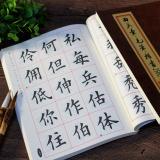 秃秀
私每兵估体
何但伸作伯
伶佣低你住